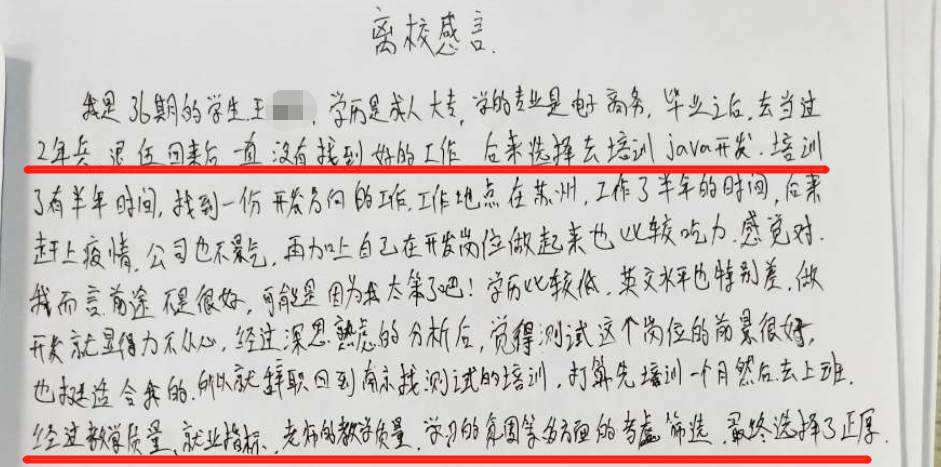 离校感言.
我是36期的学生王 , 学历是成人大专, 学的专业是电子商务. 毕业之后, 去当过
2年兵 退伍回来后 一直没有找到好的工作 后来选择去培训java开发. 培训
了有半年时间, 找到一份开发方向的工作, 工作地点在苏州, 工作了半年的时间, 后来
赶上疫情, 公司也不景气, 再加上自己在开发岗位做起来也比较吃力. 感觉对.
我而言前途不是很好, 可能是因为我太笨了吧! 学历比较低, 英文水平也特别差, 做
开发就显得力不从心, 经过深思熟虑的分析后, 觉得测试这个岗位的前景很好,
也挺适合我的. 所以就辞职回到南京找测试的培训, 打算先培训一个月然后去上班.
经过教学质量、就业指标、老师的教学质量、学习的氛围等各方面的考虑筛选、最终选择了正厚.